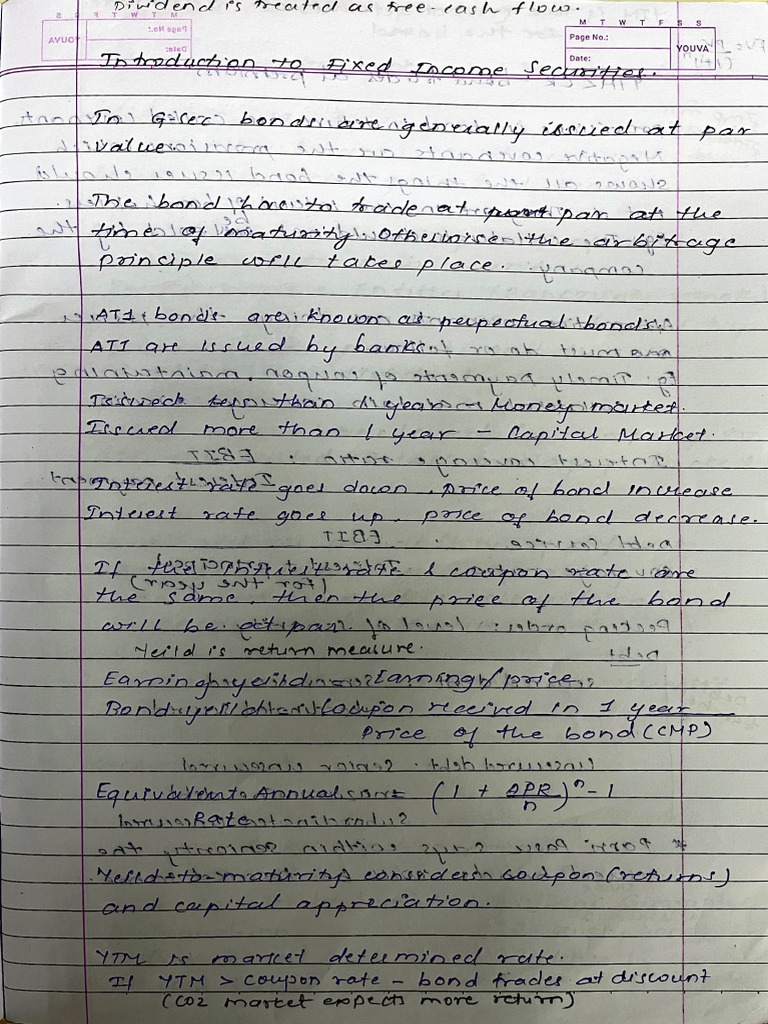 Dividend is treated as free cash flow.
M T W T F S S
Page No.:
Date:
YOUVA
Introduction to Fixed Income Securities.
In G-sec bonds are generally issued at par
value
The bond have to trade at par at the
time of maturity. Otherwise the arbitrage
principle will takes place.
AT1 bonds are known as perpectual bonds.
ATI are issued by banks
Issued less than 1 year - Money market.
Issued more than 1 year - Capital Market.
Interest rate goes down, price of bond increase
Interest rate goes up, price of bond decrease.
If interest rate & coupon rate are
(for the year)
the same, then the price of the bond
will be at par.
Yeild is return measure.
Earning yeild = Earning / price
Bond yeild = Coupon received in 1 year
Price of the bond (CMP)
Equivalent Annual = (1 + APR/n)^n - 1
Rate
Yeild to maturity considers coupon (returns)
and capital appreciation.
YTM is market determined rate.
If YTM > coupon rate - bond trades at discount
(COZ market expects more return)